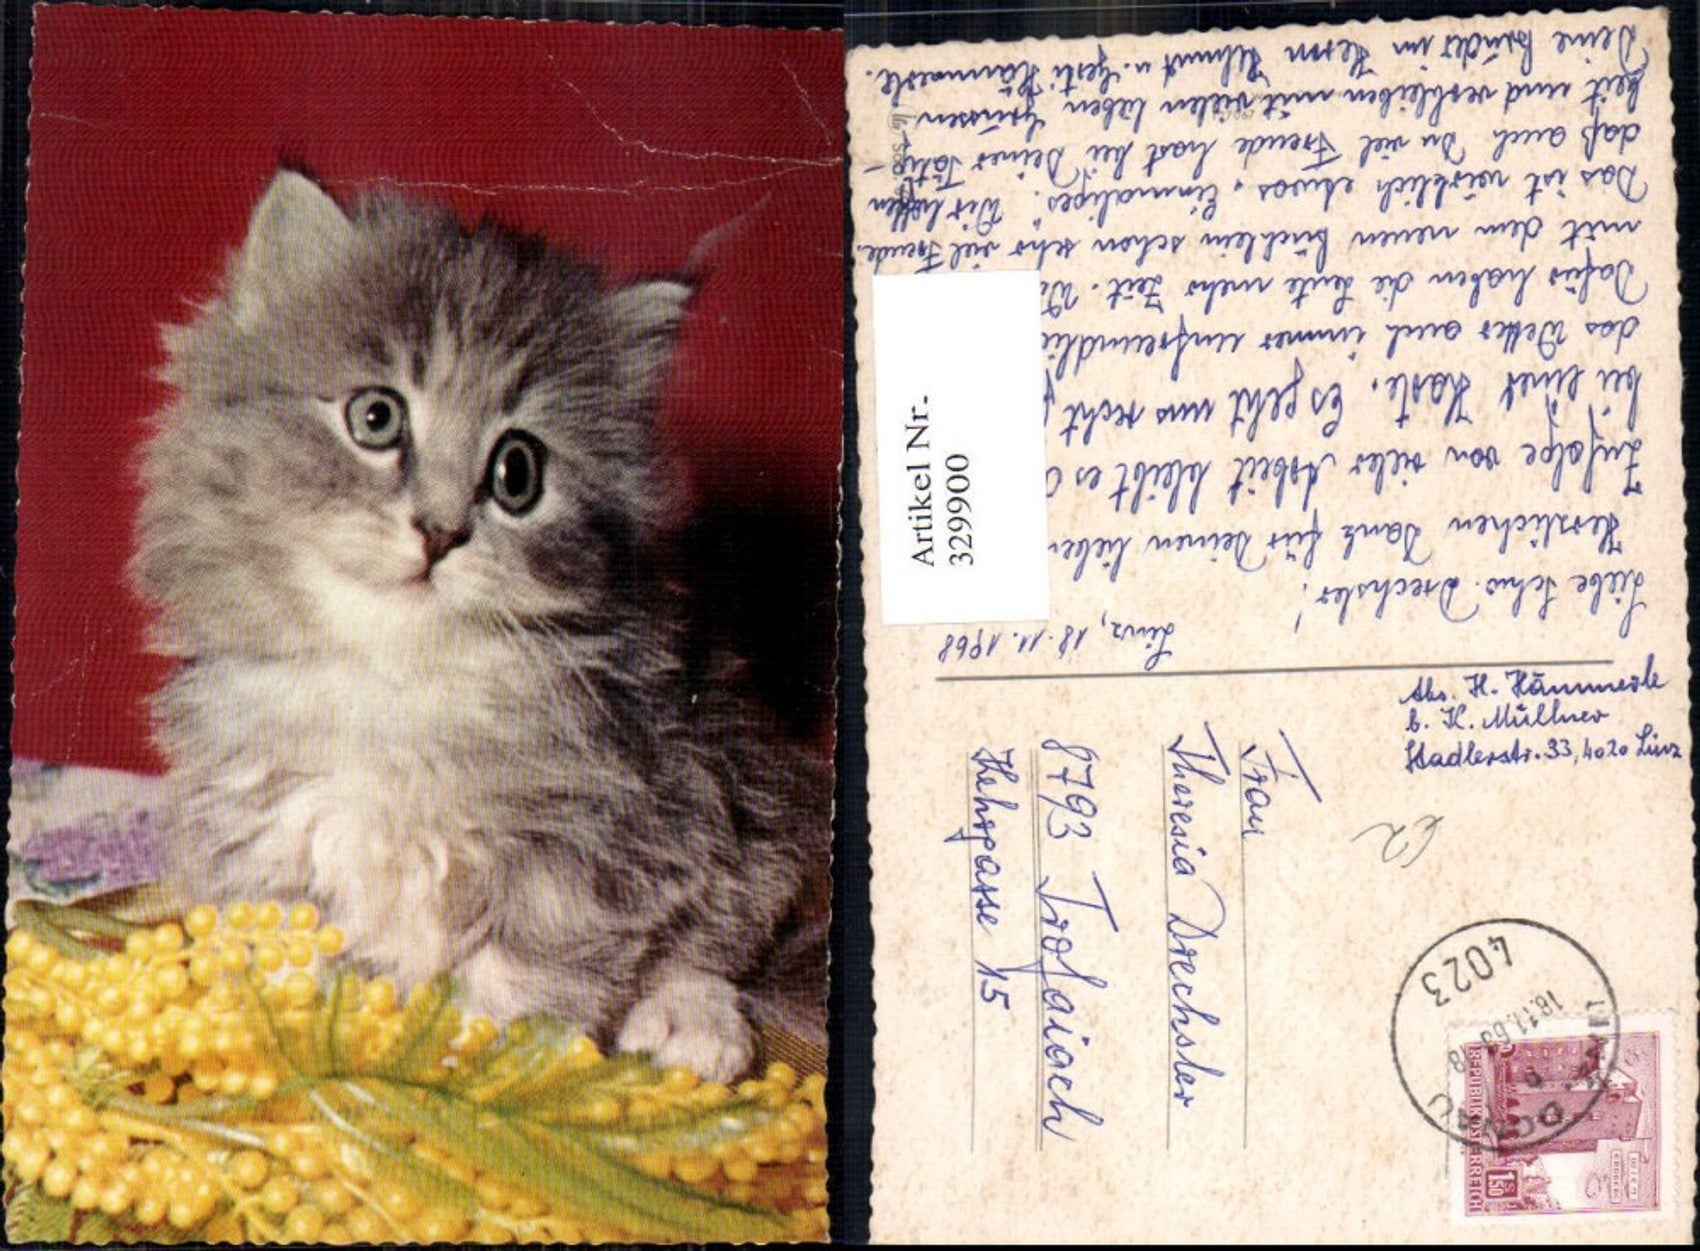 Linz, 18.11.1968
Liebe Schw. Drechsler!
Herzlichen Dank für Deinen lieben
Infolge von vieler Arbeit bleibt es
bei einer Karte. Es geht uns recht
das Wetter auch immer unfreundlic
Dafür haben die Leute mehr Zeit. W
mit dem neuen Büchlein schon sehr viel Freude.
Das ist wirklich etwas "Einmaliges". Wir hoffen
daß auch Du viel Freude hast bei Deiner Tätig-
keit und verbleiben mit vielen lieben Grüssen
Deine Brüder im Herrn Helmut u. Gerti Hämmerle.
Artikel Nr.
329900
Abs. H. Hämmerle
b. K. Müllner
Stadlerstr. 33, 4020 Linz
Frau
Theresia Drechsler
8793 Trofaiach
Rehgasse 15
4023
18.11.68
REPUBLIK ÖSTERREICH
1.50